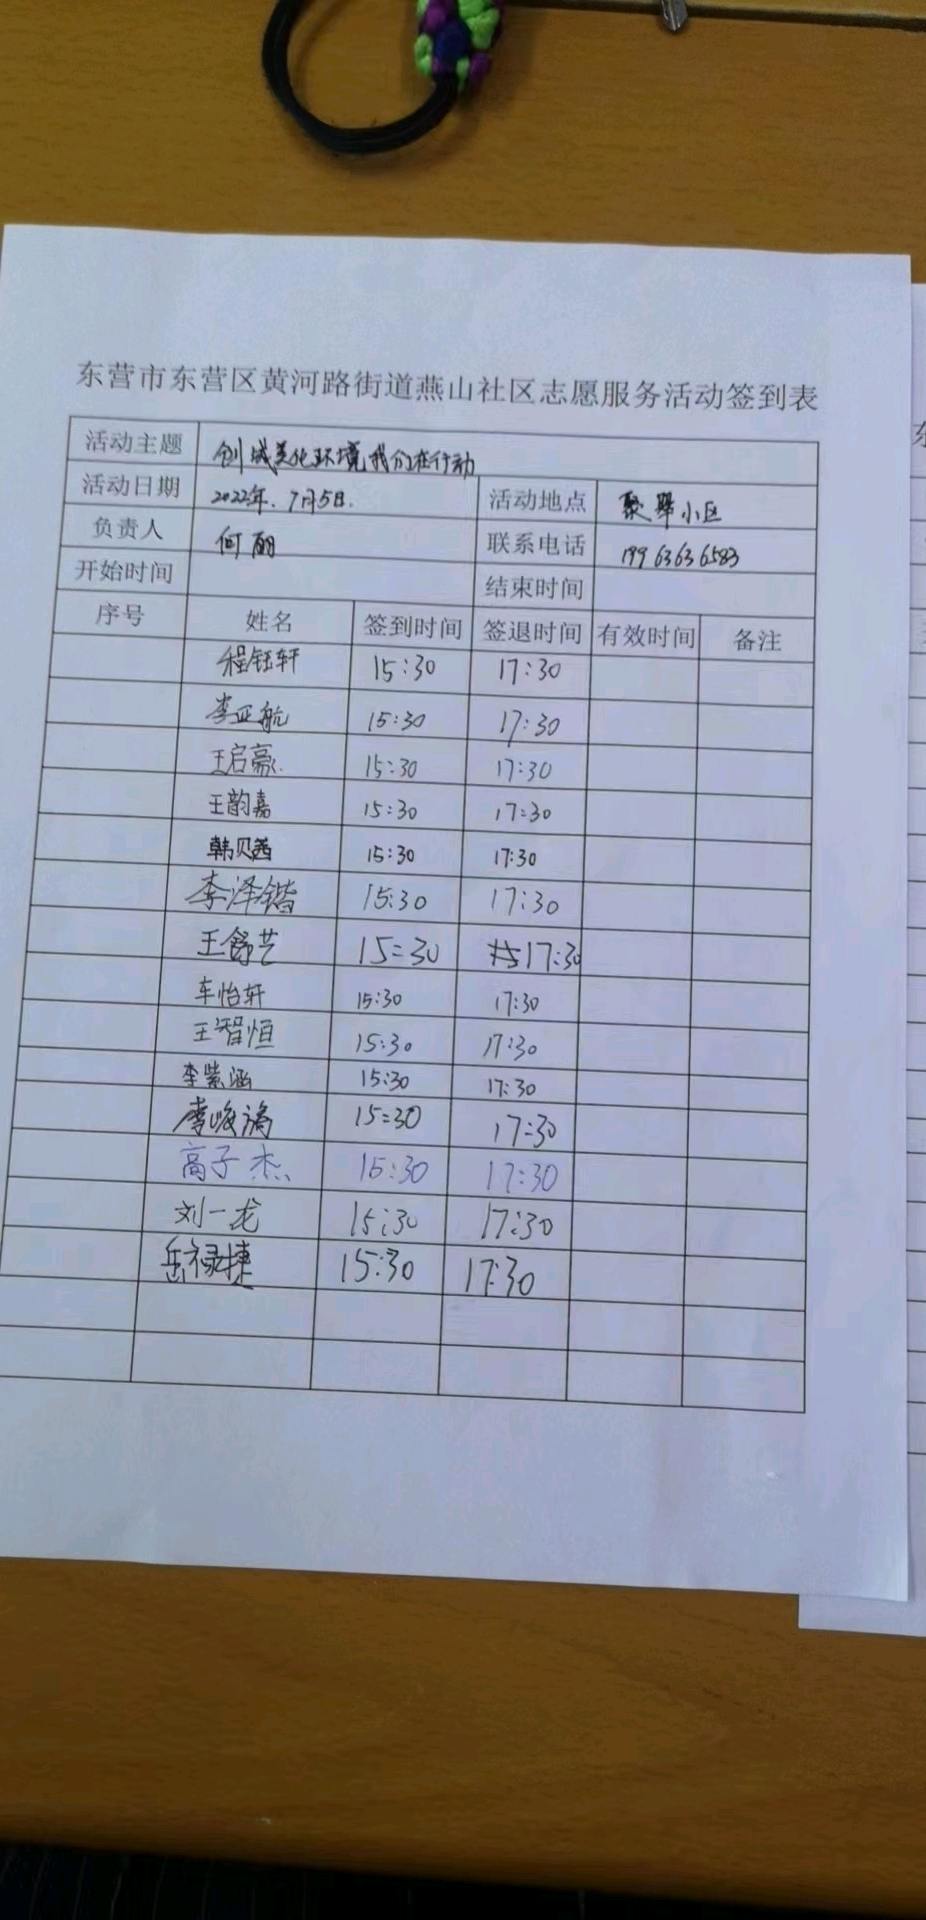 东营市东营区黄河路街道燕山社区志愿服务活动签到表
活动主题 创城美化环境我们在行动
活动日期 2022年.7月5日. 活动地点 聚翠小区
负责人 何丽 联系电话 19963636583
开始时间 结束时间
序号 姓名 签到时间 签退时间 有效时间 备注
程钰轩 15:30 17:30
李亚航 15:30 17:30
王启豪 15:30 17:30
王韵嘉 15:30 17:30
韩贝茜 15:30 17:30
李泽锴 15:30 17:30
王舒艺 15:30 17:30
车怡轩 15:30 17:30
王智恒 15:30 17:30
李紫涵 15:30 17:30
李峻 15:30 17:30
高子杰 15:30 17:30
刘一龙 15:30 17:30
岳禄捷 15:30 17:30